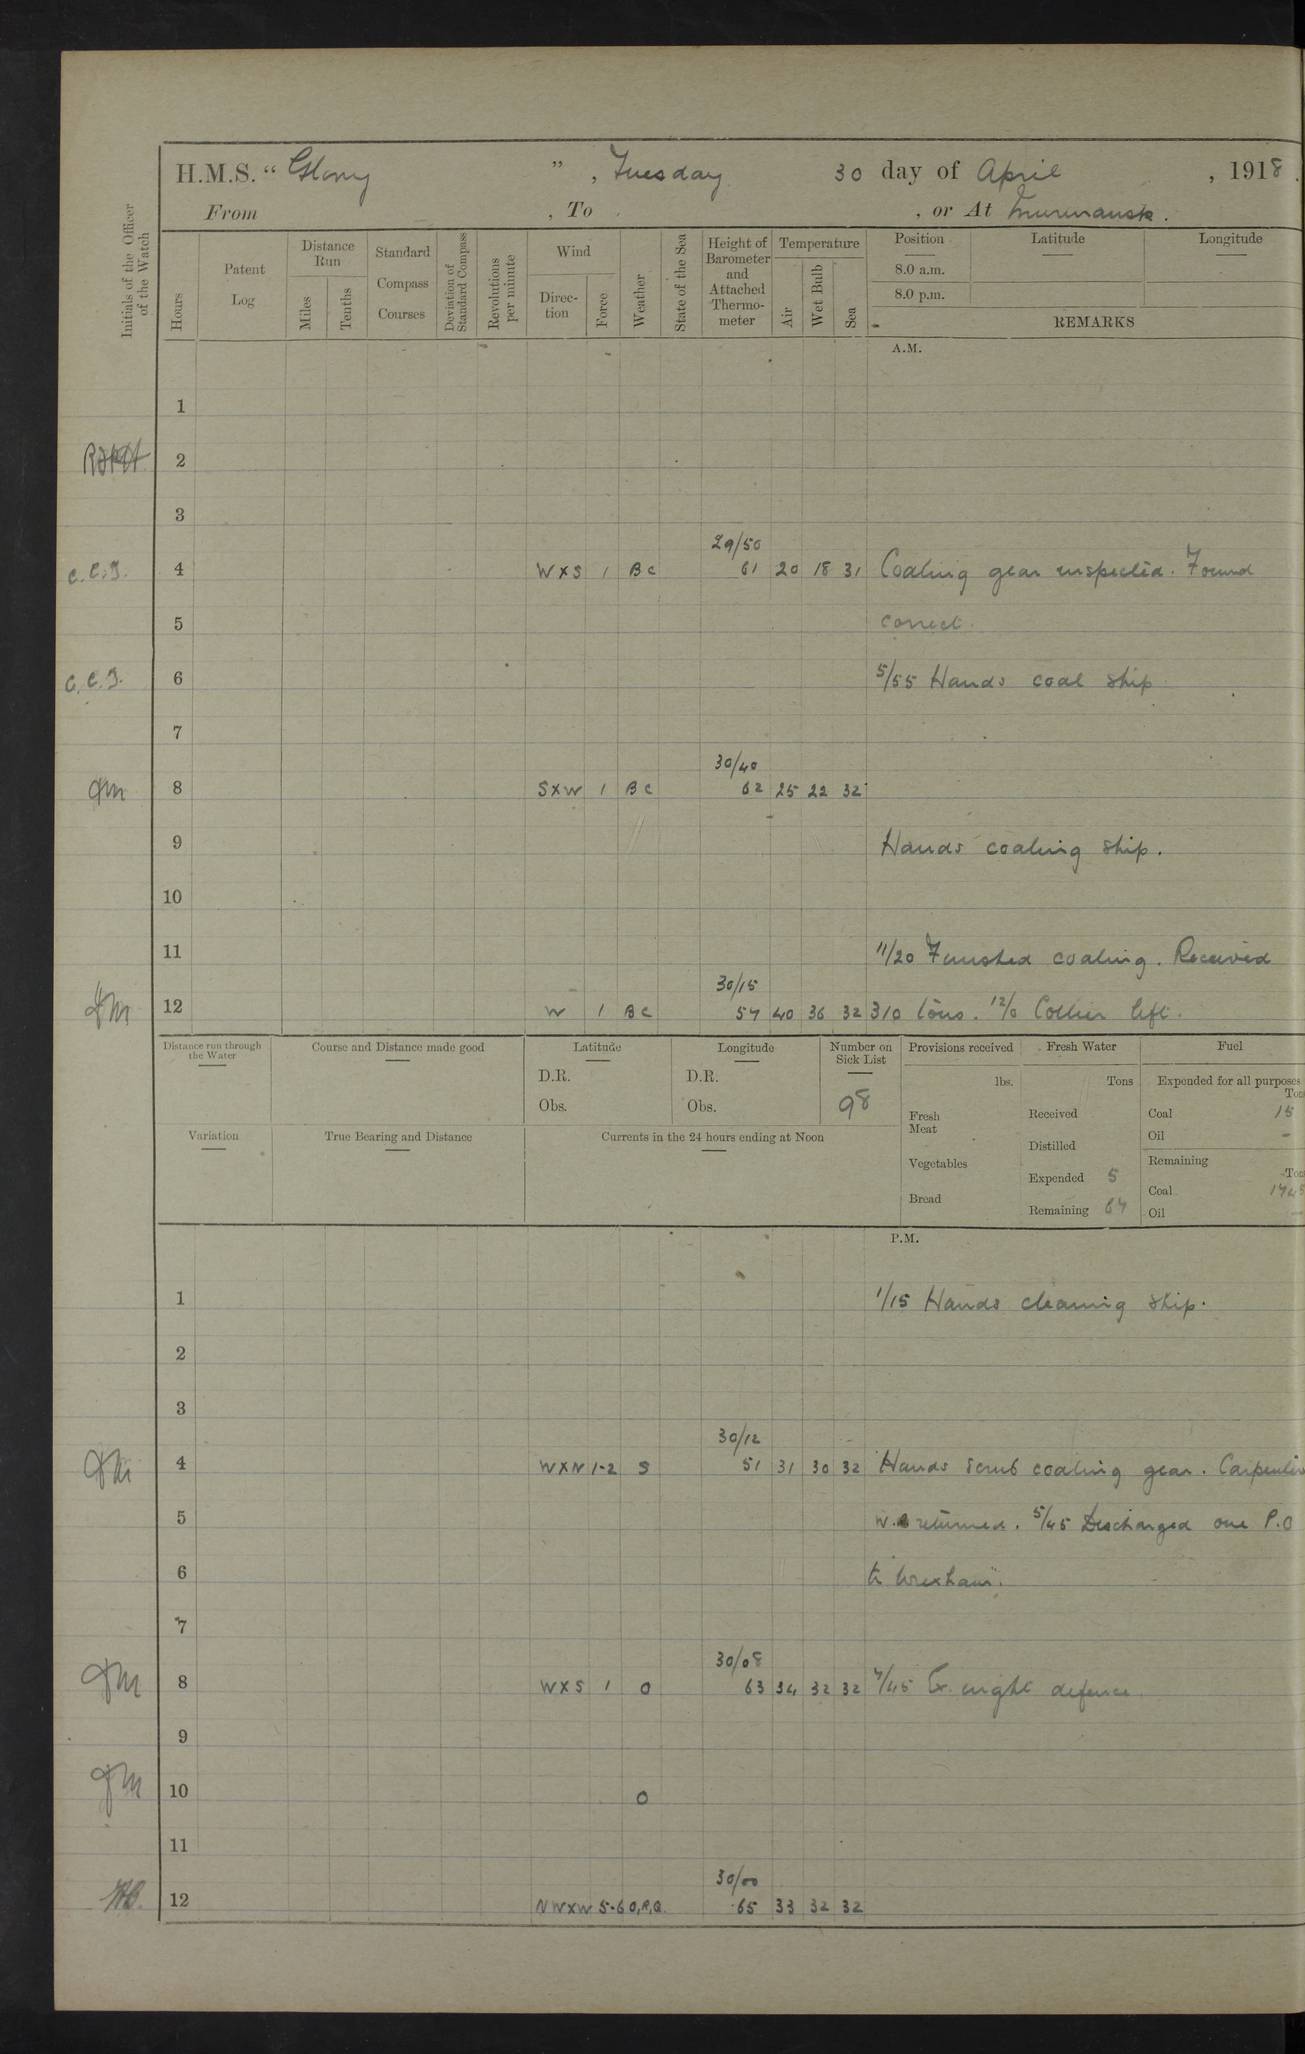 H.M.S. “ Glory ” , Tuesday 30 day of April , 1918 .
From , To , or At Murmansk .
Initials of the Officer of the Watch
Hours
Patent Log
Distance Run
Miles
Tenths
Standard Compass Courses
Deviation of Standard Compass
Revolutions per minute
Wind
Direc-tion
Force
Weather
State of the Sea
Height of Barometer and Attached Thermo-meter
Temperature
Air
Wet Bulb
Sea
Position
8.0 a.m.
8.0 p.m.
Latitude
Longitude
REMARKS
A.M.
1
2
3
29/50
C.C.J. 4 W X S 1 B C 61 20 18 31 Coaling gear inspected. Found
5 correct.
C.C.J. 6 5/55 Hands coal ship
7
30/40
8 S X W 1 B C 62 25 22 32
9 Hands coaling ship.
10
11 11/20 Finished coaling. Received
30/15
12 W 1 B C 57 40 36 32 310 tons. 12/0 Collier left.
Distance run through the Water
Course and Distance made good
Latitude
D.R.
Obs.
Longitude
D.R.
Obs.
Number on Sick List
98
Variation
True Bearing and Distance
Currents in the 24 hours ending at Noon
Provisions received
lbs.
Fresh Meat
Vegetables
Bread
Fresh Water
Tons
Received
Distilled
Expended 5
Remaining 67
Fuel
Expended for all purposes
Coal 15
Oil -
Remaining
Coal
Oil -
P.M.
1 1/15 Hands cleaning ship.
2
3
30/12
4 W X N 1-2 S 51 31 30 32 Hands scrub coaling gear.
5 returned. 5/45 Discharged one P.O
6 to Wrexham".
7
30/08
8 W X S 1 O 63 34 32 32 7/45 Ex. night defence
9
10 O
11
30/00
12 N W X W 5-6 O,P,Q. 65 33 32 32